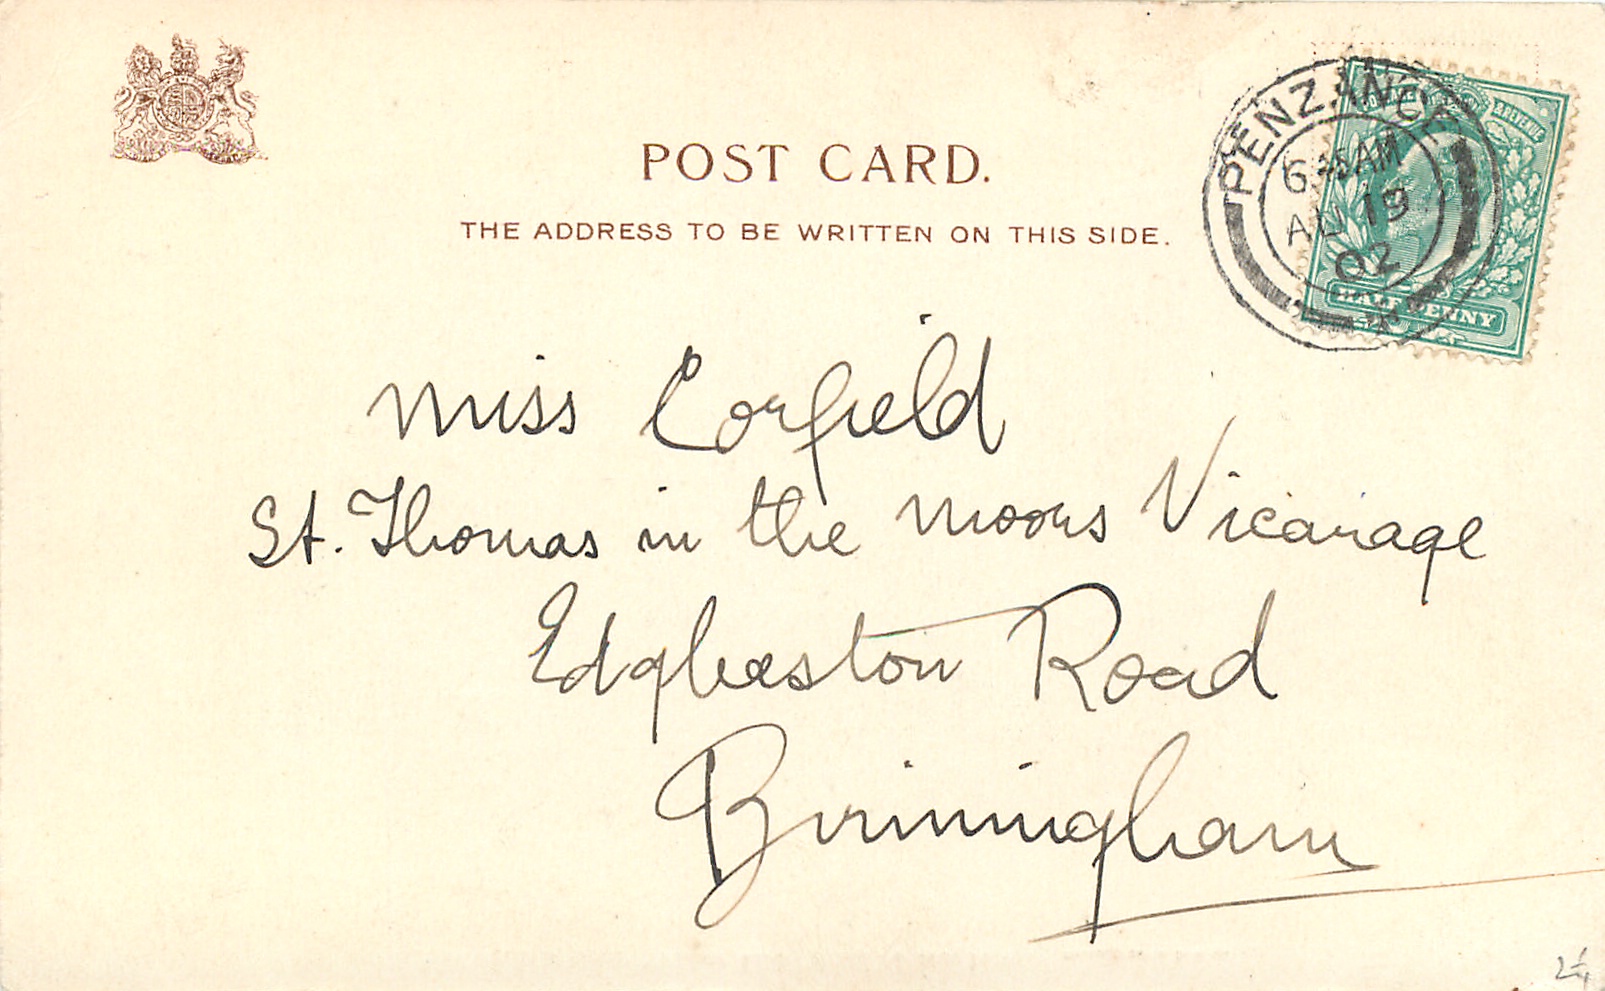 POST CARD.
THE ADDRESS TO BE WRITTEN ON THIS SIDE.
PENZANCE
6 45 AM
AU 19
02
HALFPENNY
Miss Corfield
St. Thomas in the Moors Vicarage
Edgbaston Road
Birmingham